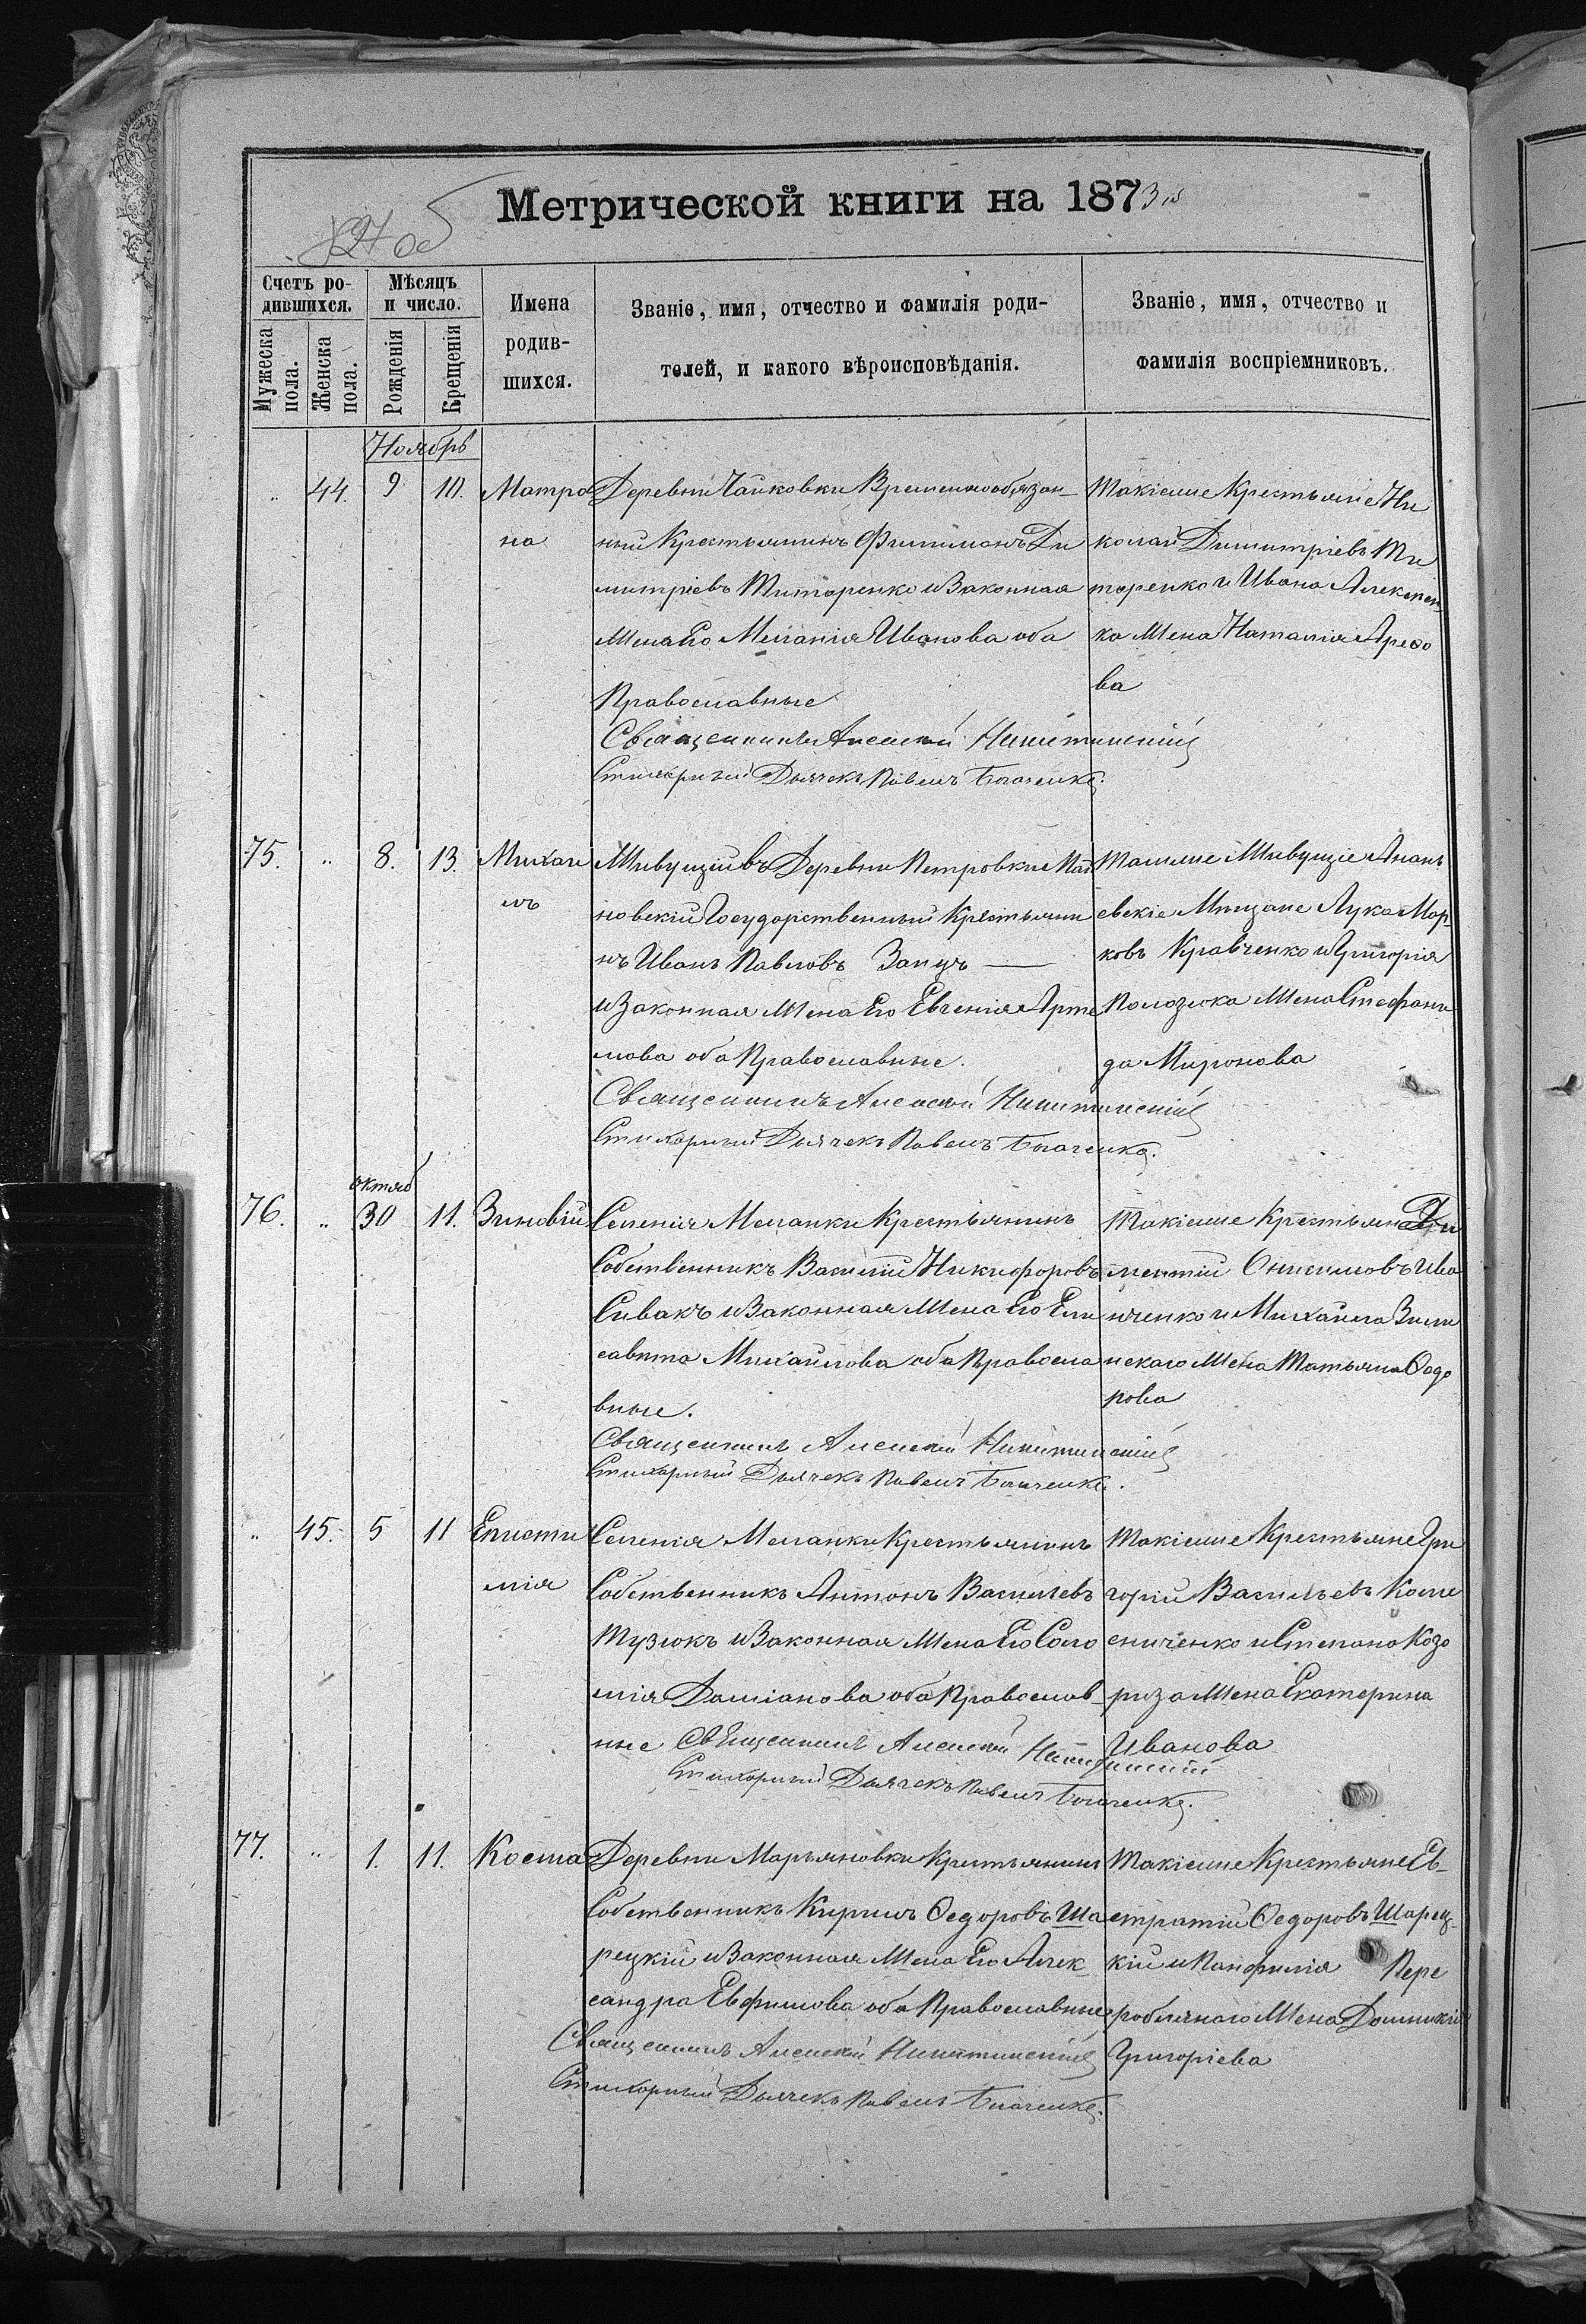 Метрической книги на 1873
Счетъ ро-
дившихся.
Мужеска
пола.
Женска
пола.
Мѣсяцъ
и число.
Рожденія
Крещенія
Имена
родив-
шихся.
Званіе, имя, отчество и фамилія роди-
телей, и какого вѣроисповѣданія.
Званіе, имя, отчество и
фамилія воспріемниковъ.
Ноябрь
44. 9 10. Матро
на
Деревни Чайковки Временнообязан-
ный Крестьянинъ Филимонъ Ди
митріевъ Титаренко и Законная
Жена Его Меланія Иванова оба
Православные
Священникъ Алексей Никитинскій
Стихарный Дьячекъ Павелъ
Такіеже Крестьяне Ни
колай Димитріевъ Ти
таренко и Ивана Алексеен
ка Жена Наталія
ва
75. 8. 13. Михаи
лъ
Живущій въ Деревни Петровки
новскій Государственный Крестьяни
нъ Иванъ Павловъ Заяцъ
и Законная Жена Его Евгенія Арте
мова оба Православные.
Священникъ Алексей Никитинскій
Стихарный Дьячекъ Павелъ
Тамже Живущіе Анань
евскіе Мещане Лука Мар-
ковъ Кравченко и Григорія
Полозюка Жена Стефани
да Миронова
октяб
76. 30 11. Зиновій
Селенія Меланки Крестьянинъ
Собственникъ Василій Никифоровъ
Сивакъ и Законная Жена Его Ели
савита Михайлова оба Правосла
вные.
Священникъ Алексей Никитинскій
Стихарный Дьячекъ Павелъ
Такіеже Крестьяне
ментій Онисимовъ Ива
нченко и Михайла Зили
нскаго Жена Татьяна Ѳедо
рова
45. 5 11 Еписти
мія
Селенія Меланки Крестьянинъ
Собственникъ Антонъ Василіевъ
Тузюкъ и Законная Жена Его Соло
мія Даміанова оба Православ-
ные Священникъ Алексей Никитинскій
Стихарный Дьячекъ Павелъ
Такіеже Крестьяне Гри
горій Васильевъ Коле
сниченко и Степана Козо
риза Жена Екатерина
Иванова
77. 1. 11. Косма
Деревни Марьяновки Крестьянинъ
Собственникъ Кирилъ Ѳедоровъ Ша
рецкій и Законная Жена Его Алек-
сандра Евфимова оба Православные
Священникъ Алексей Никитинскій
Стихарный Дьячекъ Павелъ
Такіеже Крестьяне Ев-
стратій Ѳедоровъ Шарец-
кій и Панфилія Пере
роблянаго Жена Домникія
Григоріева